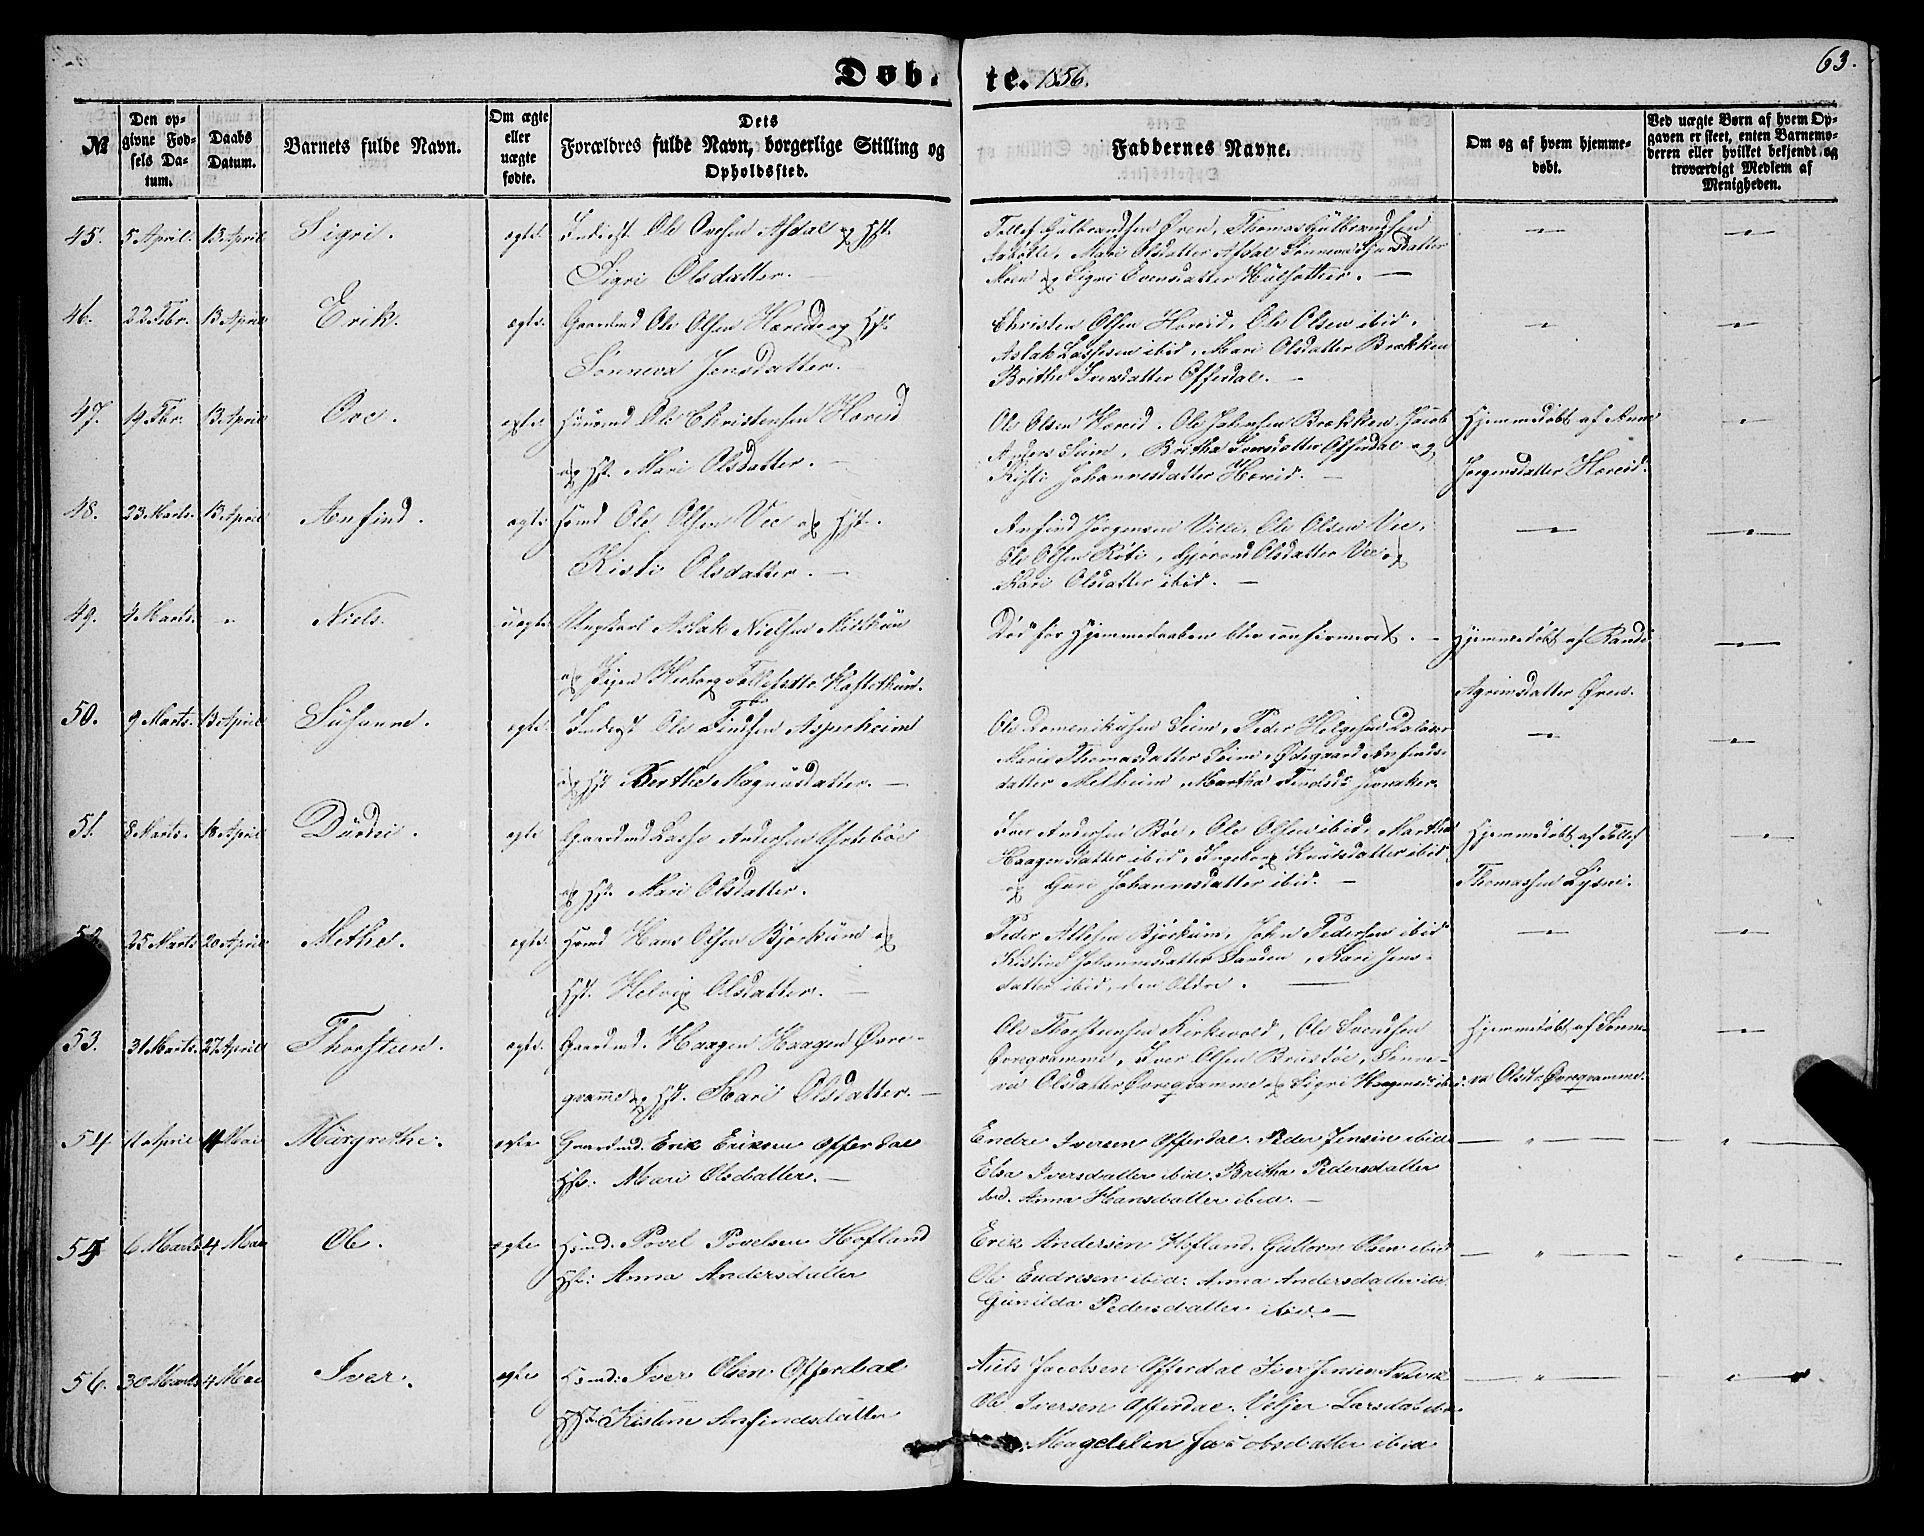 Døb- te. 1856. 63.
№ Den opgivne Fødsels Datum. Daabs Datum. Barnets fulde Navn. Om ægte eller uægte fødte. Dets Forældres fulde Navn, borgerlige Stilling og Opholdssted. Faddernes Navne. Om og af hvem hjemmedøbt. Ved uægte Børn af hvem Opgaven er skeet, enten Barnemoderen eller hvilket bekjendt og troværdigt Medlem af Menigheden.
45. 5 April. 13 April Sigri. ægte. Inderst Ole Ovesen Asdal og Hst.
Sigri Olsdatter. —
Tollef Gulbrandsen Øren, Thomas Gulbrandsen
Mari Olsdatter Asdal
Moen og Sigri
46. 22 Febr. 13 April Erik. ægte. Gaardmd Ole Olsen Horeid og Hst.
Sønneva Jensdatter. —
Christen Olsen Horeid, Ole Olsen ibid,
Aslak Lassesen ibid, Mari Olsdatter Brækken
Brithe Iversdatter Offerdal. —
47. 19 Fbr. 13 April Ove. ægte. Huusmd Ole Christensen Horeid
og Hst. Mari Olsdatter. —
Ole Olsen Horeid, Ole Johnsen Brækken, Jacob
Anders Seim, Britha Iversdatter Offerdal og
Kisti Johannesdatter Horeid. —
Hjemmedøbt af Anne
Jørgensdatter Horeid.
48. 23 Marts. 13 April Anfind. ægte. Hsmd Ole Olsen Vee og Hst.
Kisti Olsdatter. —
Anfind Jørgensen Ville, Ole Olsen Vee,
Ole Olsen Røti, Gjorond Olsdatter Vee og
Kari Olsdatter ibid. —
49. 4 Marts. " Niels. uægte. Ungkarl Aslak Nielsen
og Pigen
Død før Hjemmedaaben blev confirmeret. —
Hjemmedøbt af Randi
Agrimsdatter Øren.
50. 9 Marts. 13 April Susanne. ægte. Inderst Ole Findsen Asperheim
og Hst Berthe Magnusdatter. —
Ole Domenikusen Seim, Peder Helgesen
Marie Thomasdatter Seim, Ødegaard Anfinds-
datter Melheim, Martha
51. 8 Marts. 13 April Durdei. ægte Gaardmd Lasse Andersen
og Hst. Mari Olsdatter.
Iver Andersen Bøe, Ole Olsen ibid, Martha
Haagensdatter ibid, Ingeborg Knutsdatter ibid
og Guri Johannesdatter ibid. —
Hjemmedøbt af Tollef
Thomassen Lysne.
52. 25 Marts 20 April Methe. ægte. Hsmd Hans Olsen Bjørkum og
Hst. Helvig Olsdatter. —
Peder Bjørkum, John Pedersen ibid
Kistine Johannesdatter Kari Jens-
datter ibid, den Eldre. —
53. 31 Marts. 27 April Thorsteen. ægte. Gaardmd. Haagen Haagens Øvre-
gramme og Hst. Kari Olsdatter. —
Ole Thorsteensen Kirkevold, Ole Svendsen
Øvregramme, Iver Olsen Brustøe, Sønne-
va Olsdatter Øvregramme og Sigri Haagensd ibid.
Hjemmedøbt af Sønne-
va Olsdtr Øvregramme.
54 11 April 4 Mai Margrethe. ægte Gaardmd. Erik Eriksen Offerdal
Hst. Mari Olsdatter. —
Endre Iversen Offerdal. Peder Jensen ibid
Elsa Iversdatter ibid. Britha Pedersdatter
ibid. Anna Hansdatter ibid. —
55 6 Marts 4 Mai Ole. ægte Hsmd. Povel Povelsen Hofland
Hst. Anna Andersdatter
Erik Andersen Hofland, Guttorm Olsen ibid
Ole Endresen ibid. Anna Andersdatter ibid
Gunilda Pedersdatter ibid. —
56. 30 Marts 4 Mai Iver. ægte Hsmd. Iver Olsen Offerdal
Hst. Kistine Anfindsdatter
Niels Jacobsen Offerdal Iver Jensen
Ole Iversen Offerdal. Larsdat ibid
Magdelen Jacobsdatter ibid